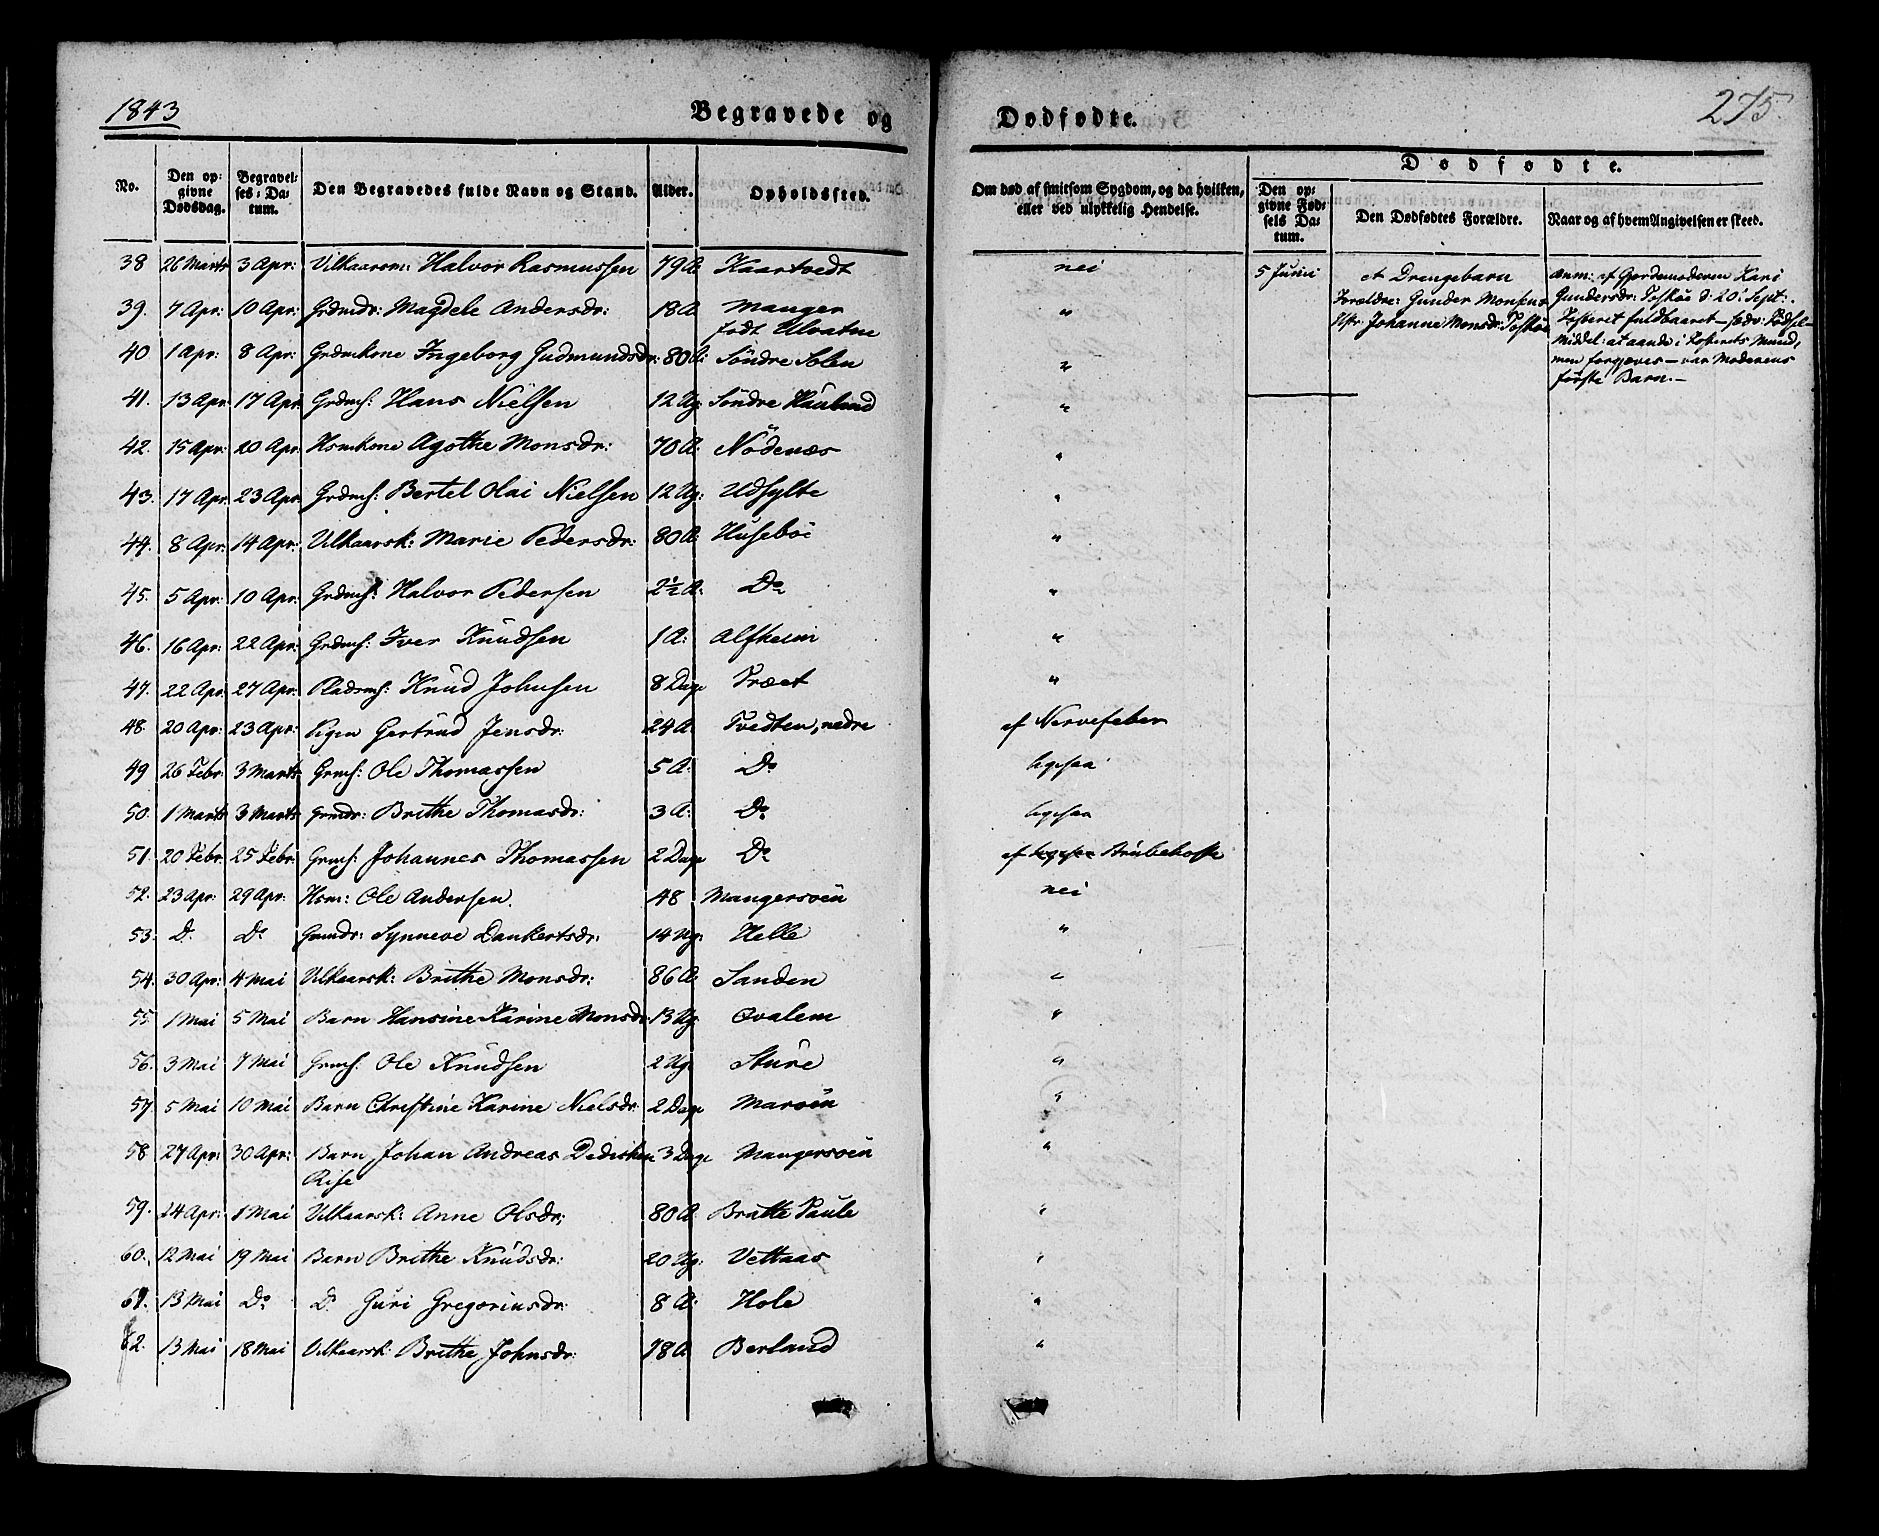 1843 Begravede og Dødfødte. 275.
No. Den opgivne Dødsdag. Begravelses-Datum. Den Begravedes fulde Navn og Stand. Alder. Opholdssted. Om død af smitsom Sygdom, og da hvilken, eller ved ulykkelig Hendelse.
Dødfødte.
Den opgivne Fødsels Datum. Den Dødfødtes Forældre. Naar og af hvem Angivelsen er skeed.
38 26 Marts 3 Apr: Vilkaarsm: Halvor Rasmussen 79 A: Kaartvedt nei
39. 7 Apr: 10 Apr: Grdmdr: Magdele Andersdr: 18 A Manger "
født Ulvatne
40 1 Apr: 8 Apr: Grdmkone Ingeborg Gudmundsdr: 80 A: Söndre Solen "
41. 13 Apr 17 Apr. Grdms: Hans Nielsen 12 Ug: Söndre Haulund "
42. 15 Apr: 20 Apr: Hsmkone Agothe Monsdr: 70 A: Nödenæs "
43. 17 Apr. 23 Apr. Grdms: Bertel Olai Nielsen 12 Ug: Udsylte "
44. 8 Apr: 14 Apr: Vilkaarsk: Marie Pedersdr: 80 A: Huseböe "
45. 5 Apr: 10 Apr: Grdms: Halvor Pedersen 2½ A: Do "
46. 16 Apr: 22 Apr: Grdms: Iver Knudsen 1 A: Alfheim "
47. 22 Apr. 27 Apr. Pladsms: Knud Johnsen 8 Dage Træet "
48. 20 Apr: 23 Apr: Pigen Gertrud Jensdr: 24 A: Tvedten, nedre af Nervefeber
49 26 Febr: 3 Marts Grms: Ole Thomassen 5 A: Do ligesaa
50. 1 Marts 3 Marts Grmdr: Brithe Thomasdr: 3 A: Do ligesaa
51. 20 Febr: 25 Febr: Grms: Johannes Thomassen 2 Dage Do af ligesaa Strubehoste
52. 23 Apr: 29 Apr: Hsm: Ole Andersen. 48 Mangersöen nei
53. Do Do Grmdr: Synneve Dankertsdr: 14 Ug: Helle "
54. 30 Apr: 4 Mai Vilkaarsk: Brithe Monsdr: 86 A: Sanden "
55 1 Mai 5 Mai Barn Hansine Karine Monsdr. 13 Ug. Qvalem "
56. 3 Mai 7 Mai Grms: Ole Knudsen 2 Ug. Sture "
57. 5 Mai 10 Mai Barn Christine Karine Nielsdr: 2 Dage Maröen "
58 27 Apr: 30 Apr: Barn Johan Andreas Didriksen 3 Dage Mangersöen "
Rise
59. 24 Apr: 1 Mai Vilkaarsk: Anne Olsdr: 80 A: Bratte Taule "
60. 12 Mai 19 Mai Barn Brithe Knudsdr: 20 Ug: Vettaas "
61. 13 Mai Do Do Guri Gregoriusdr: 8 A: Hole "
62. 13 Mai 18 Mai Vilkaarsk: Brithe Johnsdr: 78 A: Berland "
5 Junii et Drengebarn
Forældre: Gunder Monsen
Hstr. Johanne Monsdr: Toskøe
Anm: af Gjordemoderen Kari
Gundersdr: Toskøe d: 20: Sept:
Fosteret fuldbaaret – Fødsel
Middel: at aande i Fosterets Mund,
men forgjeves – var Moderens
første Barn. –